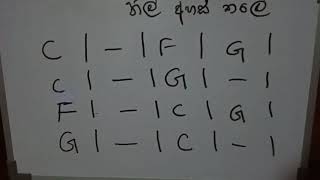 නිල් අහස් තලෙ
C | – | F | G |
C | – | G | – |
F | – | C | G |
G | – | C | – |